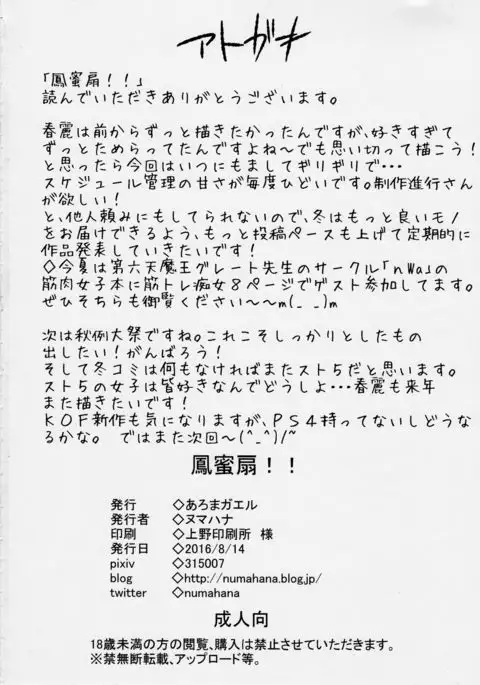 アトガキ
「鳳蜜扇！！」
読んでいただきありがとうございます。
春麗は前からずっと描きたかったんですが、好きすぎて
ずっとためらってたんですよね～でも思い切って描こう！
と思ったら今回はいつにもましてギリギリで・・・
スケジュール管理の甘さが毎度ひどいです。制作進行さん
が欲しい！
と、他人頼みにもしてられないので、冬はもっと良いモノ
をお届けできるよう、もっと投稿ペースも上げて定期的に
作品発表していきたいです！
◇今夏は第六天魔王グレート先生のサークル「nWa」の
筋肉女子本に筋トレ痴女8ページでゲスト参加してます。
ぜひそちらも御覧ください～～m(_ _)m
次は秋例大祭ですね。これこそしっかりとしたもの
出したい！がんばろう！
そして冬コミは何もなければまたスト5だと思います。
スト5の女子は皆好きなんでどうしよ・・・春麗も来年
また描きたいです！
KOF新作も気になりますが、PS4持ってないしどうな
るかな。 ではまた次回～(^_^)/~
鳳蜜扇！！
発行 ◇あろまガエル
発行者 ◇ヌマハナ
印刷 ◇上野印刷所 様
発行日 ◇2016/8/14
pixiv ◇315007
blog ◇http://numahana.blog.jp/
twitter ◇numahana
成人向
18歳未満の方の閲覧、購入は禁止させていただきます。
※禁無断転載、アップロード等。